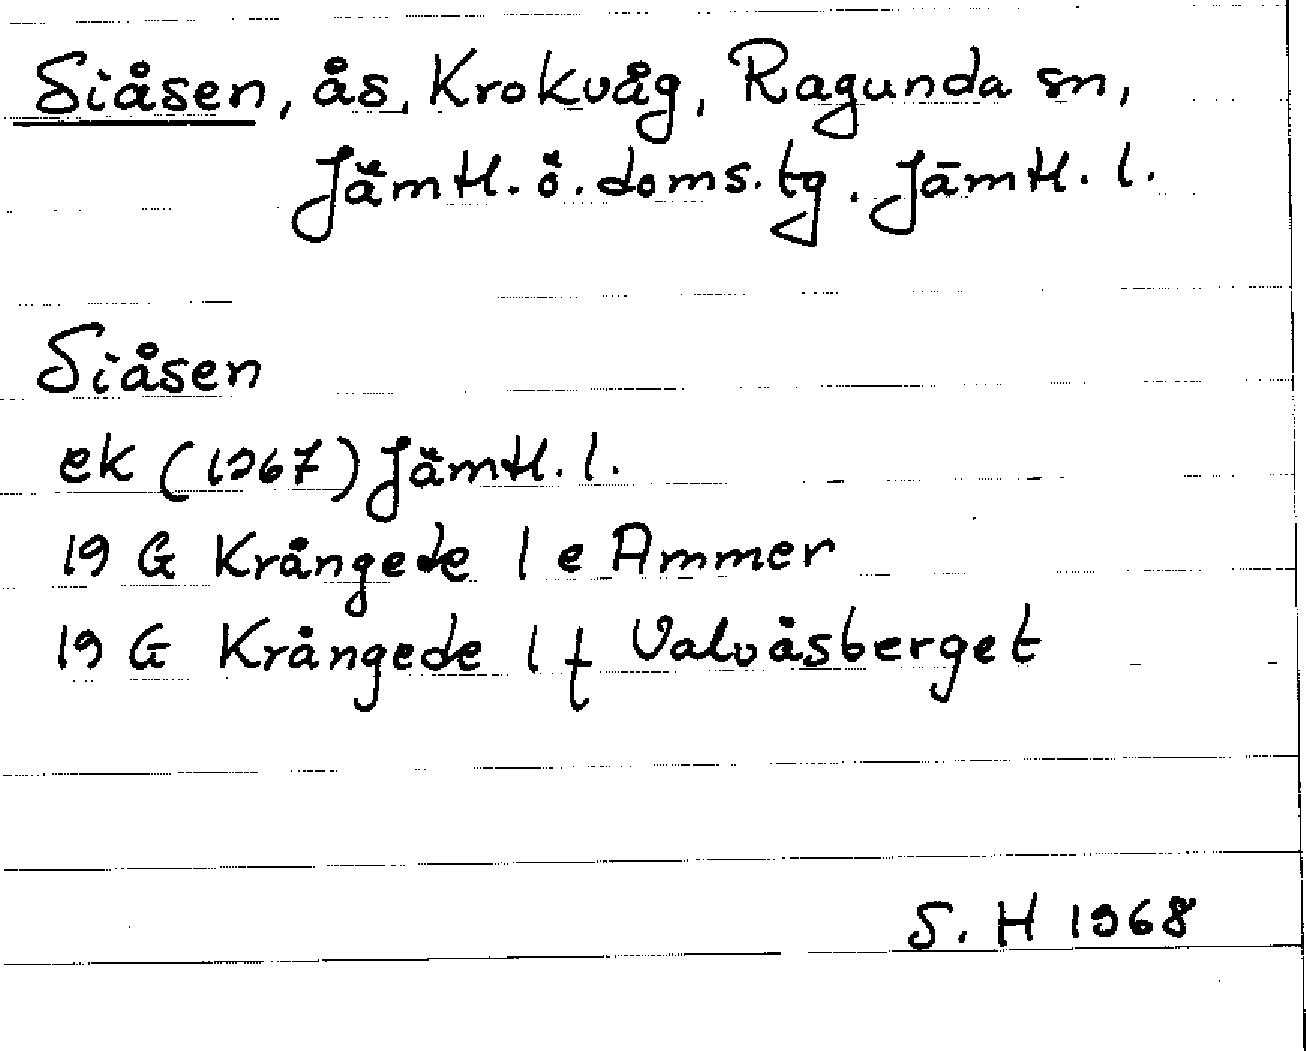 Siåsen, ås, Krokvåg, Ragunda sn,
Jämtl. ö. doms. tg. Jämtl. l.
Siåsen
ek (1967) Jämtl. l.
19 G Krångede 1 e Ammer
19 G Krångede 1 f Valvåsberget
S. H 1968